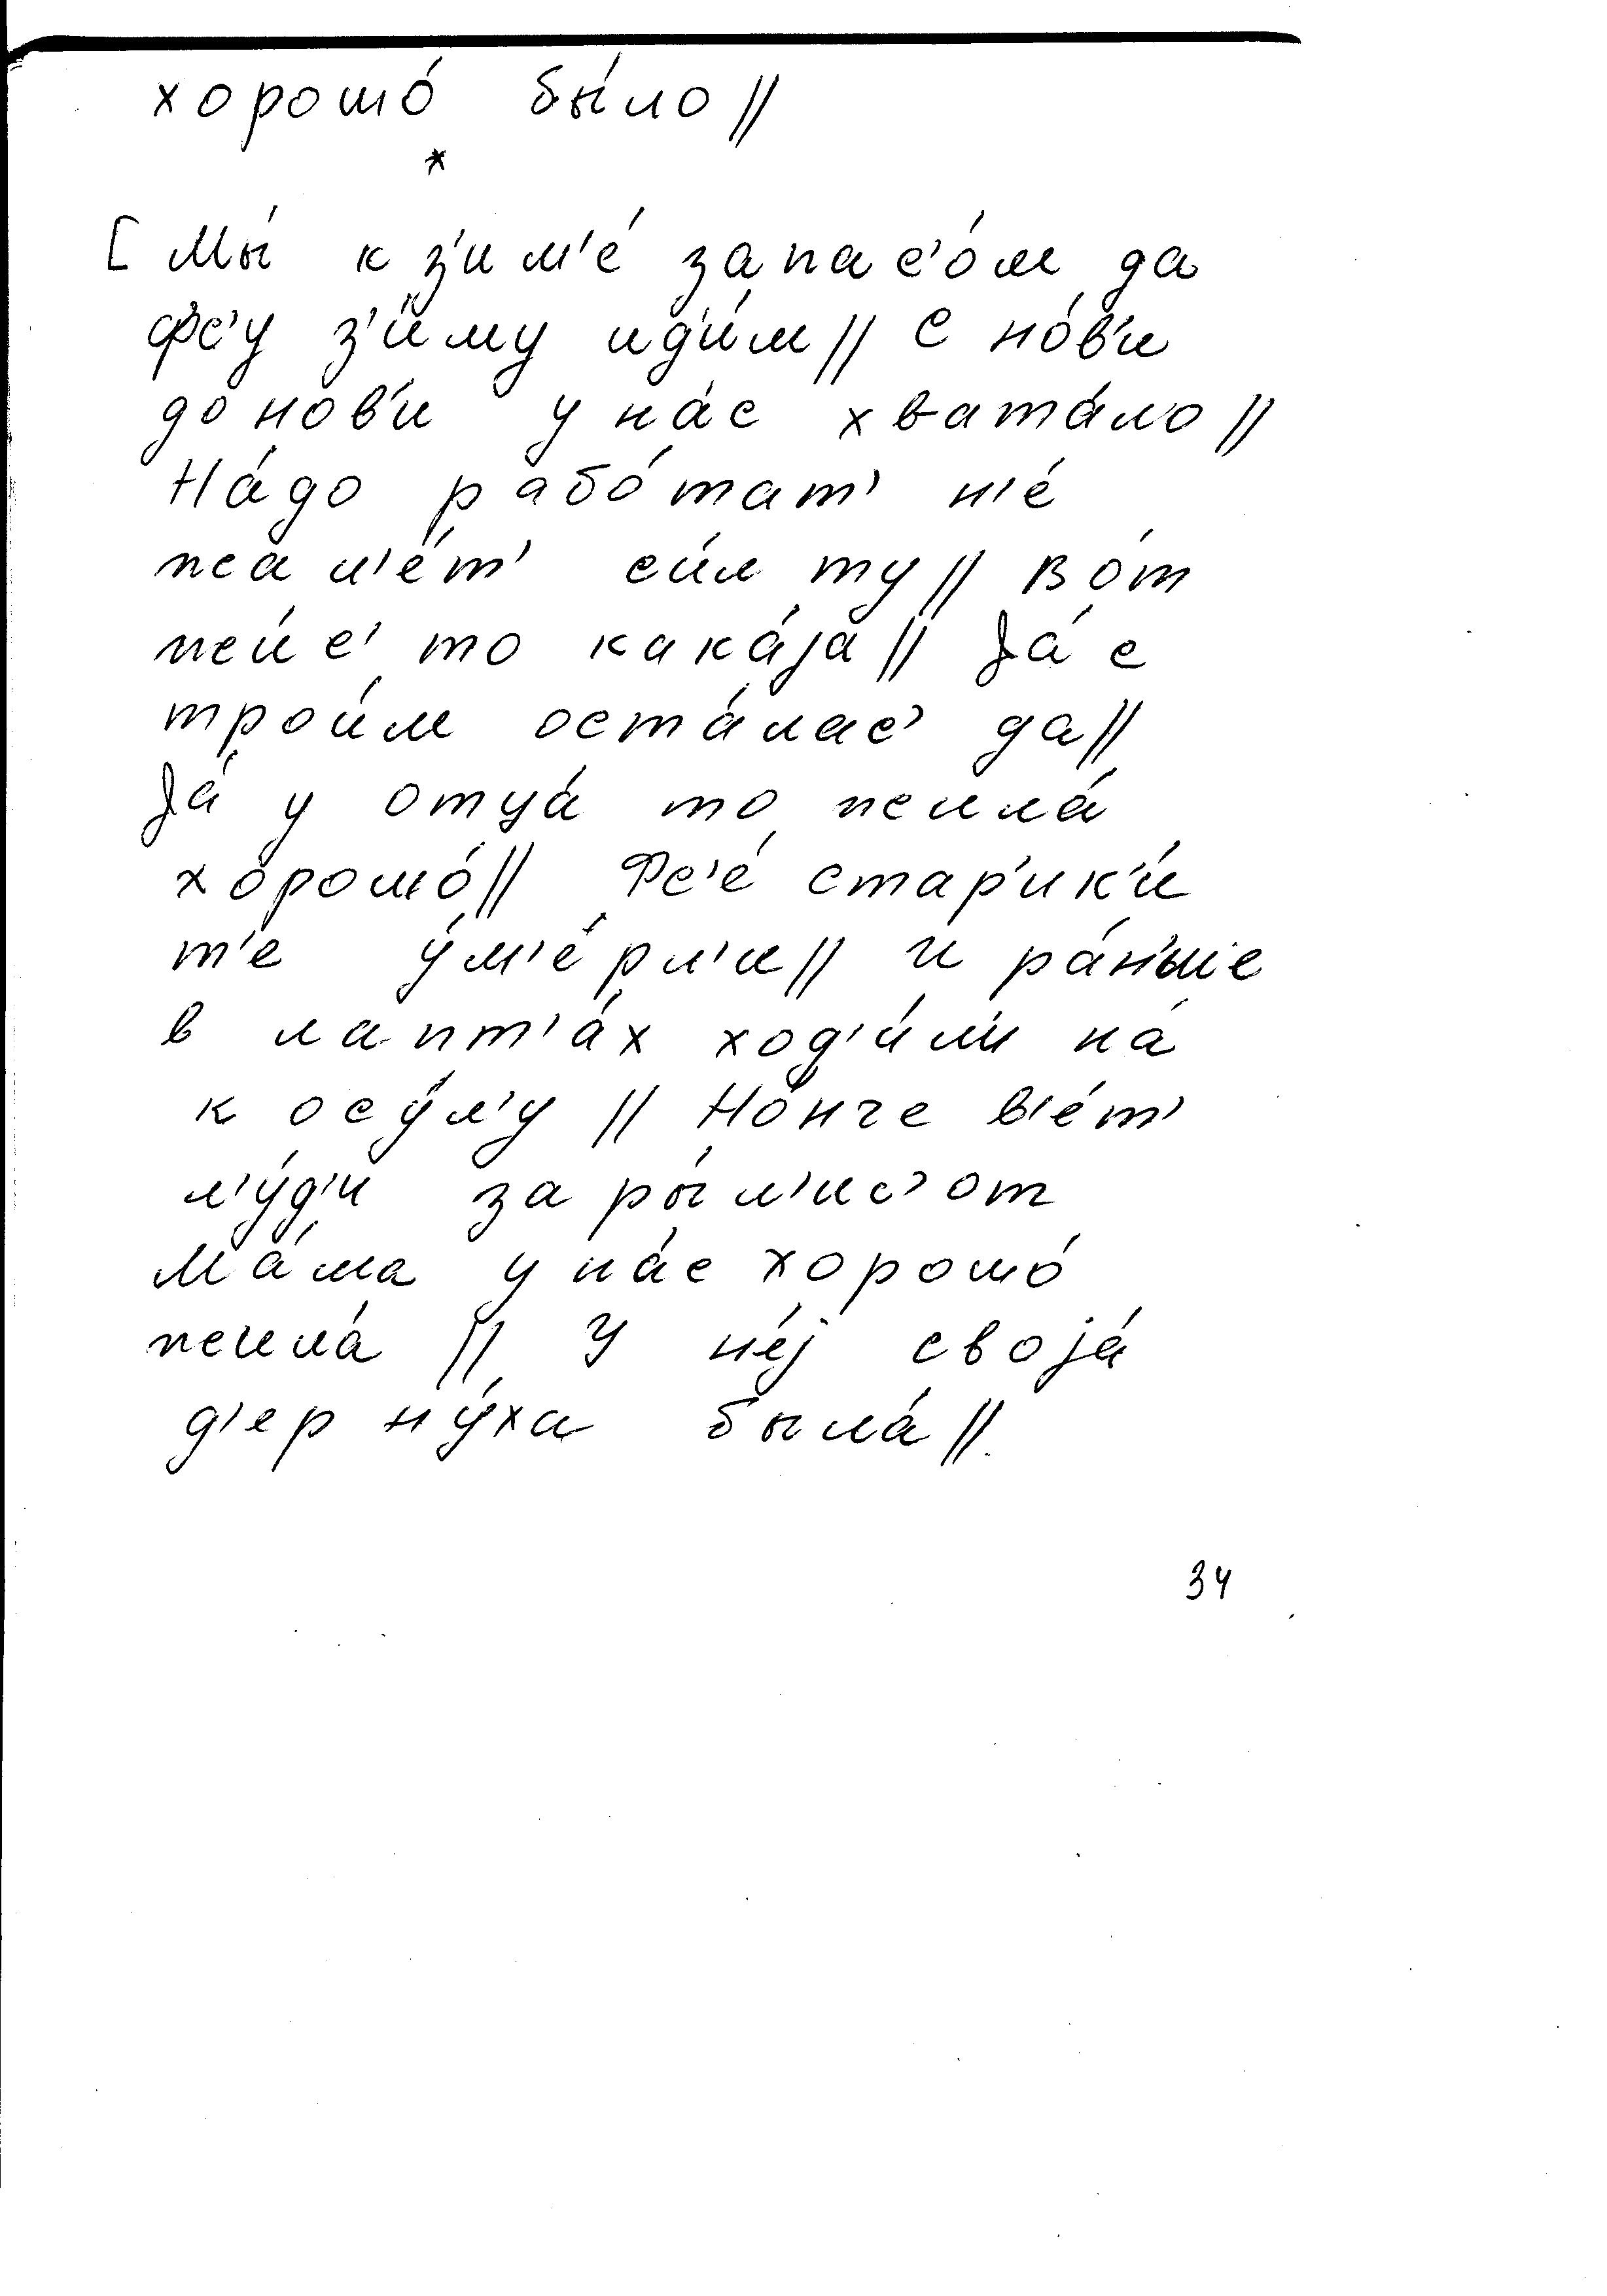 хорошо́ бы́ло //
*
[ Мы́ к з'им'е́ запас'о́м да
фс'у з'и́му ид'и́м // С но́в'и
до нов'и у на́с хвата́ло //
На́до рабо́тат' н'е́
жал'е́т' сил ту // Во́т
жи́с' то кака́jа // Jа́ с
трои́м оста́лас' да //
Jа́ у отца́ то жила́
хорошо́ // Фс'е́ стар'ик'и́
т'е у́м'ерл'и // И ра́н'ше
в лапт'а́х ход'и́л'и на́
косу́л'у // Но́нче в'е́т'
л'у́д'и зары́л'ис' от
Ма́ма у на́с хорошо́
жила́ // У не́j своjа́
д'ерну́ха была́ //
34